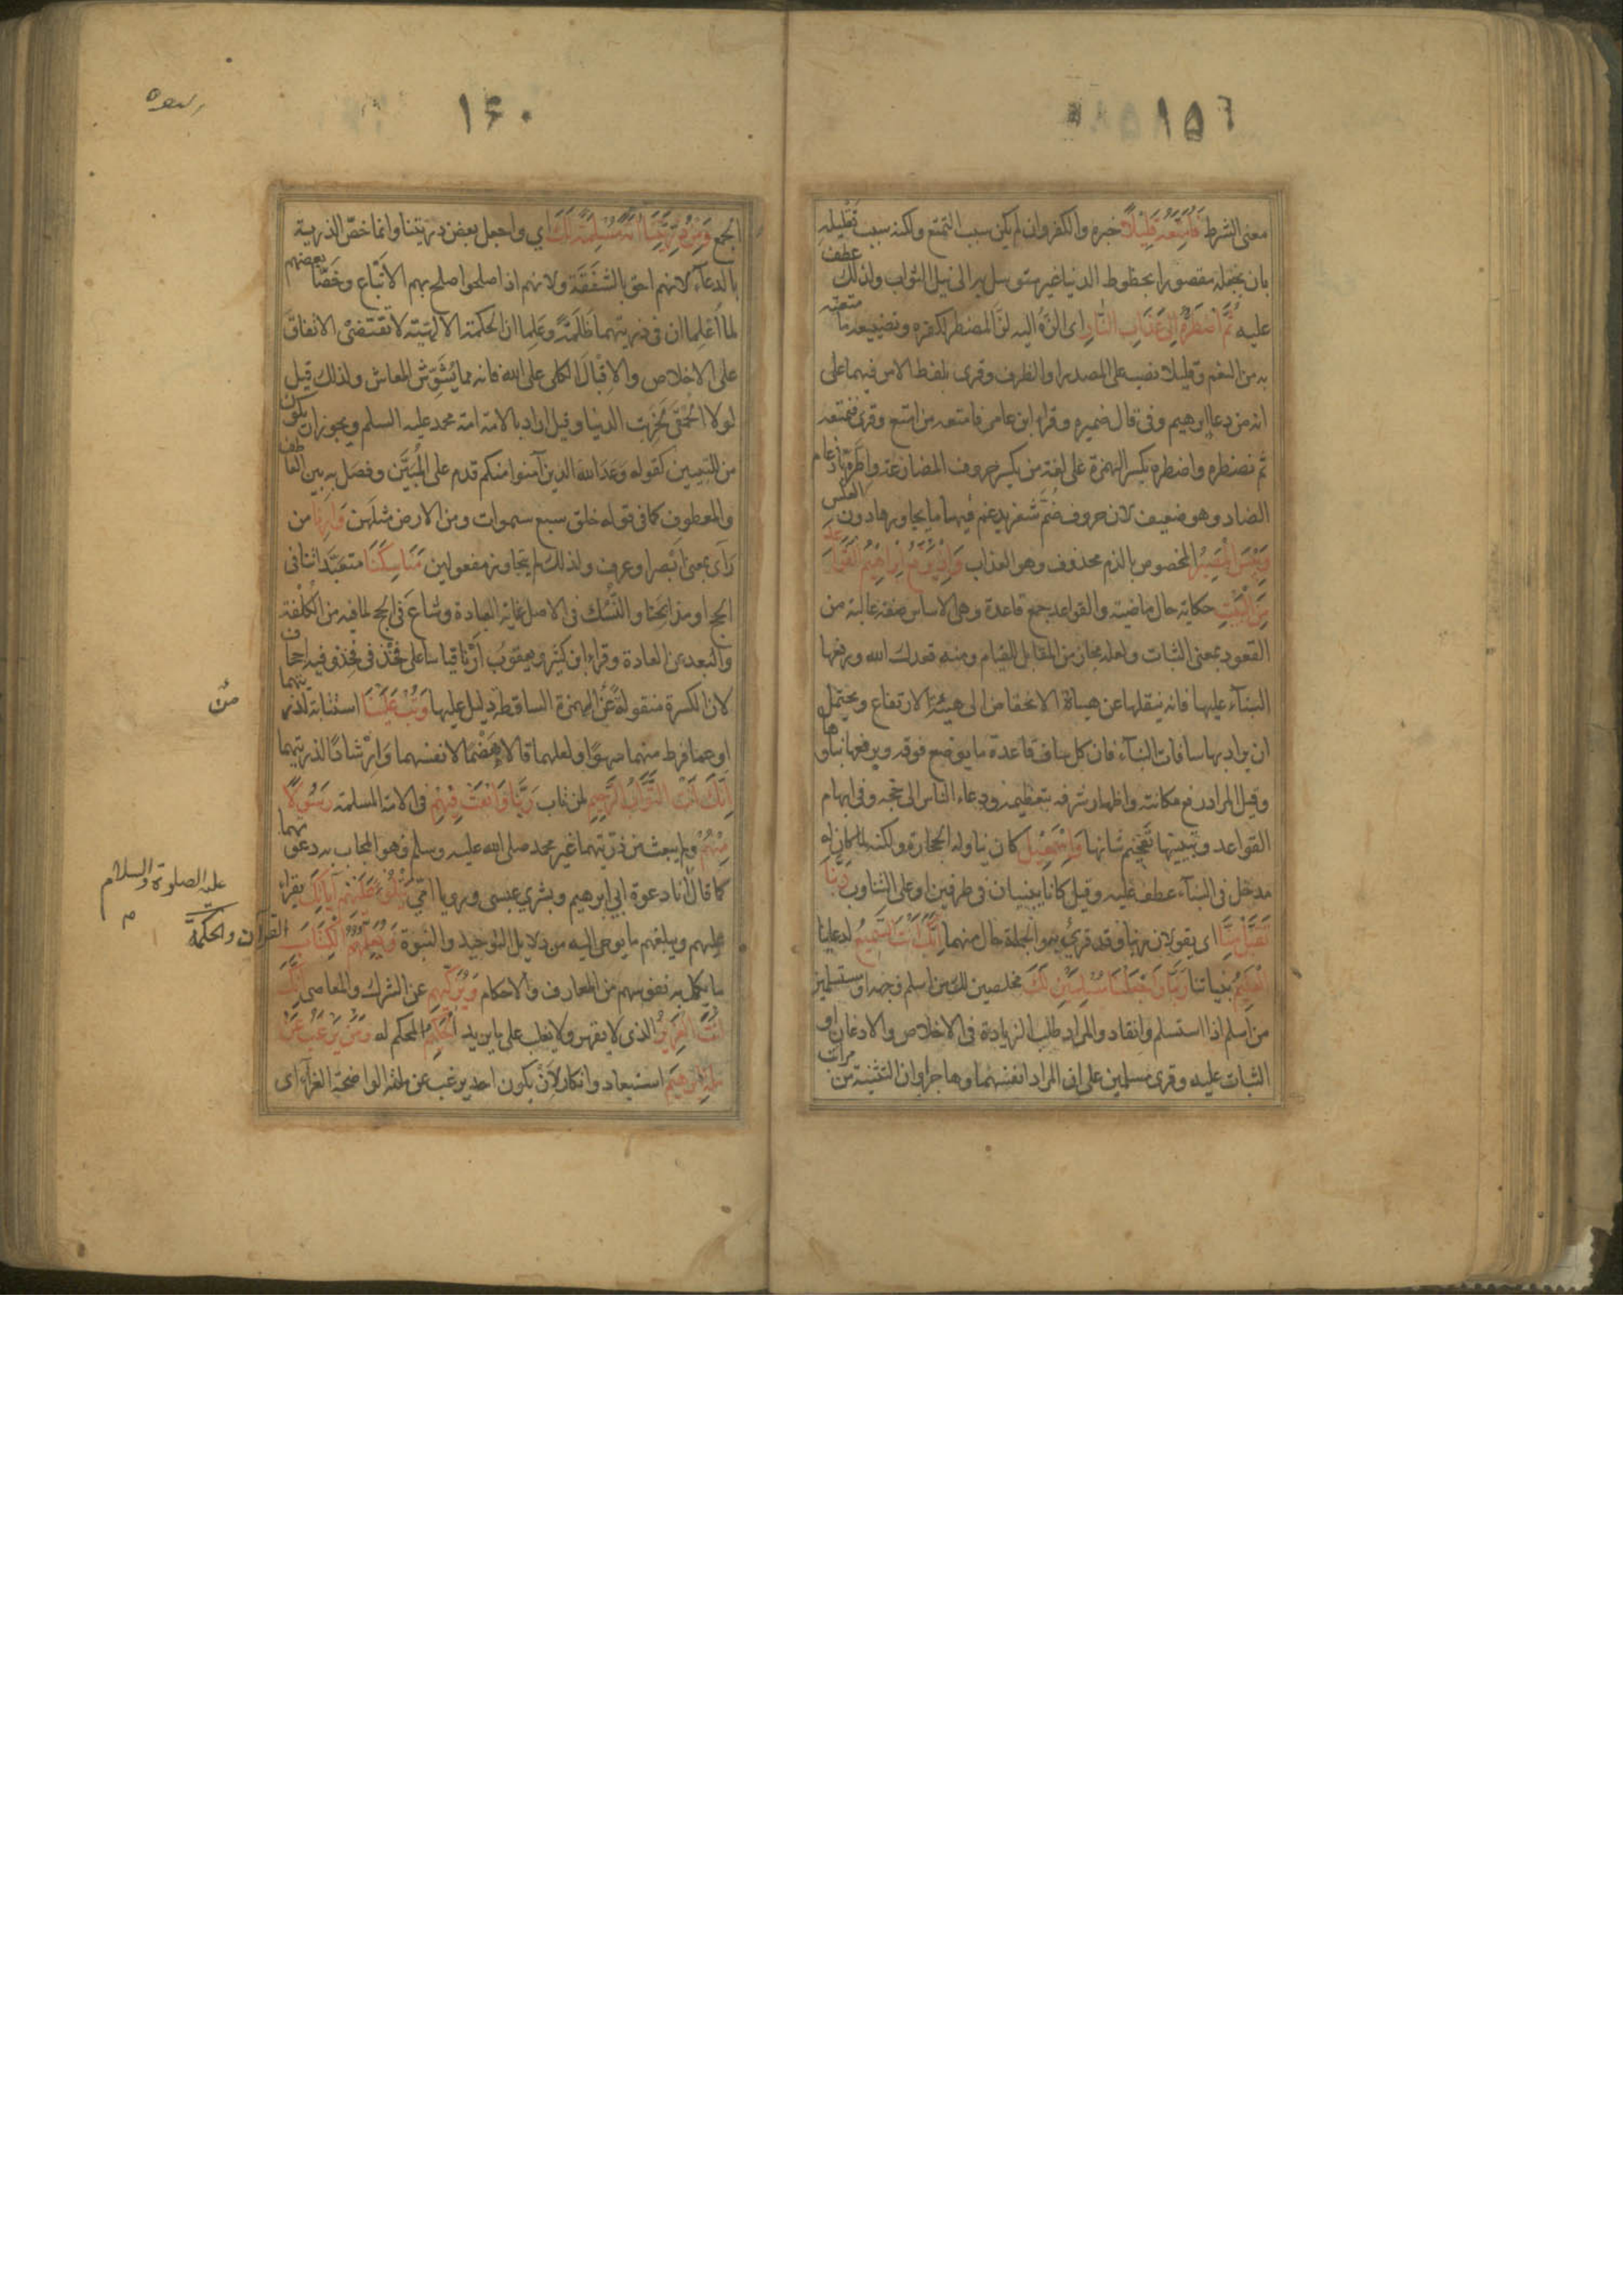 ١٥٦
معنى الشرط فَأُمَتِّعُهُ قَلِيْلًا خبره والكفر وان لم يكن سبب التمتع ولكنه سبب تقليله
بان يجعله مقصورا بحظوظ الدنيا غير متوسل به الى نيل الثواب ولذلك عطف
عليه ثُمَّ أَضْطَرُّهُ إِلَى عَذَابِ النَّارِ اى الزه اليه لز المضطر لكفره وتضييعه ما متعته
به من النعم وقليلا نصب على المصدر او الظرف وقرى بلفظ الامر فيهما على
انه من دعا ابرهيم وفى قال ضميره وقراء ابن عامر فامتعه من امتع وقرى فنمتعه
ثم نضطره واضطره بكسر الهمزة على لغة من يكسر حروف المضارعة واطره بادغام
الضاد وهو ضعيف لان حروف ضم شفر يدغم فيها ما يجاورها دون العكس
وَبِئْسَ الْمَصِيْرُ المخصوص بالذم محذوف وهو العذاب وَاِذْ يَرْفَعُ اِبْرَاهِيْمُ الْقَوَاعِدَ
مِنَ الْبَيْتِ حكاية حال ماضية والقواعد جمع قاعدة وهى الاساس صفة غالبة من
القعود بمعنى الثبات ولعله مجاز من المقابل للقيام ومنه قعدك الله ورفعها
البنآء عليها فانه ينقلها عن هيأة الانخفاض الى هيئة الارتفاع ويحتمل
ان يراد بها سافات البنآء فان كل ساف قاعدة ما يوضع فوقه ويرفعها بناؤها
وقيل المراد رفع مكانته واظهار شرفه بتعظيمه ودعاء الناس الى حجه وفى ابهام
القواعد وتبيينها تفخيم شانها وَاِسْمٰعِيْلُ كان يناوله الحجارة ولكنه لما كان له
مدخل فى البنآء عطف عليه وقيل كانا يبنيان فى طرفين او على التناوب رَبَّنَا
تَقَبَّلْ مِنَّا اى يقولان ربنا وقد قرئ به والجملة حال منهما اِنَّكَ اَنْتَ السَّمِيْعُ لدعائنا
الْعَلِيْمُ بنياتنا رَبَّنَا وَاجْعَلْنَا مُسْلِمَيْنِ لَكَ مخلصين لك من اسلم وجهه او مستسلمين
من اسلم اذا استسلم وانقاد والمراد طلب الزيادة فى الاخلاص والاذعان او
الثبات عليه وقرى مسلمين على ان المراد انفسهما وهاجر او ان التثنية من مراتب
١۶٠
الجمع وَمِنْ ذُرِّيَّتِنَا اُمَّةً مُسْلِمَةً لَكَ اي واجعل بعض ذريتنا وانما خصّ الذرية
بالدعآء لانهم احق بالشفقة ولانهم اذا صلحوا صلح بهم الاتباع وخصّا بعضهم
لما اُعْلِما ان فى ذريتهما ظلمة وعلما ان الحكمة الالهية لا تقتضى الاتفاق
على الاخلاص والاقبال الكلى على الله فانه مما يشوش المعاش ولذلك قيل
لولا الحمقى لخربت الدنيا وقيل اراد بالامة امة محمد عليه السلم ويجوز ان يكون
من للتبيين كقوله وعد الله الذين آمنوا منكم قدم على المبيَّن وفصل به بين العاطف
والمعطوف كما فى قوله خلق سبع سموات ومن الارض مثلهن وَاَرِنَا من
رآى بمعنى ابصر او عرف ولذلك لم يتجاوز مفعولين مَنَاسِكَنَا متعبداتنا فى
الحج او مذابحنا والنُّسُك فى الاصل غاية العبادة وشاع فى الحج لما فيه من الكلفة
والبعد عن العادة وقراء ابن كثير ويعقوب اَرْنا قياسا على فخْذ فى فخِذ وفيه اجحاف
لان الكسرة منقولة عن الهمزة الساقطة دليل عليها وَتُبْ عَلَيْنَا استتابة لذريتهما
او عما فرط منهما سهوًا ولعلهما قالا هضْمًا لانفسهما وارشادًا لذريتهما
اِنَّكَ اَنْتَ التَّوَّابُ الرَّحِيْمِ لمن تاب رَبَّنَا وَابْعَثْ فِيْهِمْ فى الامة المسلمة رَسُوْلًا
مِنْهُمْ ولم يبعث من ذرّيتهما غير محمد صلى الله عليه وسلم فهو المجاب به دعوتهما
كما قال انا دعوة ابي ابرهيم وبشري عيسى ورويا امي يَتْلُوْ عَلَيْهِمْ آيَاتِكَ يقراء
عليهم ويبلغهم ما يوحى اليه من دلايل التوحيد والنبوة وَيُعَلِّمُهُمُ الْكِتَابَ القرآن والحكمة
ما يكمل به نفوسهم من المعارف والاحكام وَيُزَكِّيْهِمْ عن الشرك والمعاصى اِنَّكَ
اَنْتَ الْعَزِيْزُ الذى لا يقهر ولا يغلب على ما يريد الْحَكِيْمُ المحكم له وَمَنْ يَرْغَبُ عَنْ
مِلَّةِ اِبْرٰهِيْمَ استبعاد وانكار لاَنْ يكون احد يرغب عن ملته الواضحة الغرآء اى
من
عليه الصلوة والسلام
م